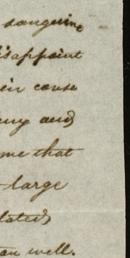 sanguine
disappoint
eir cause
eny and
me that
large
lated
an well.